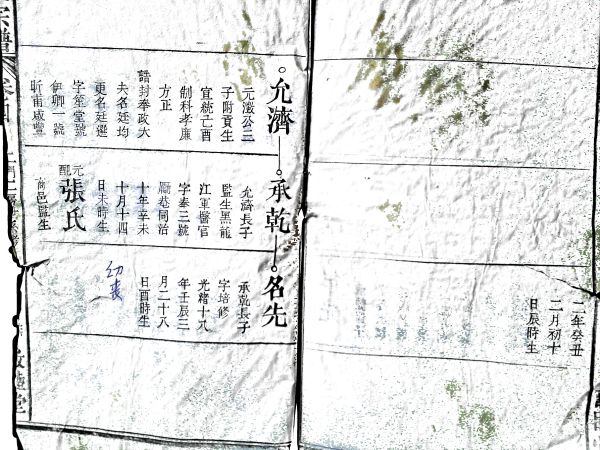 二年癸丑
二月初十
日辰時生
允濟
元瀓公三
子附貢生
宣統己酉
制科孝廉
方正
誥封奉政大
夫名廷均
更名廷選
字筀堂號
伊卿一號
昕甫咸豐
承乾
允濟長子
監生黑龍
江軍醫官
字泰三號
同治
十年辛未
十月十四
日未時生
元配張氏
高邑監生
名先
承乾長子
字培修
光緒十八
年壬辰三
月二十八
日酉時生
幼喪